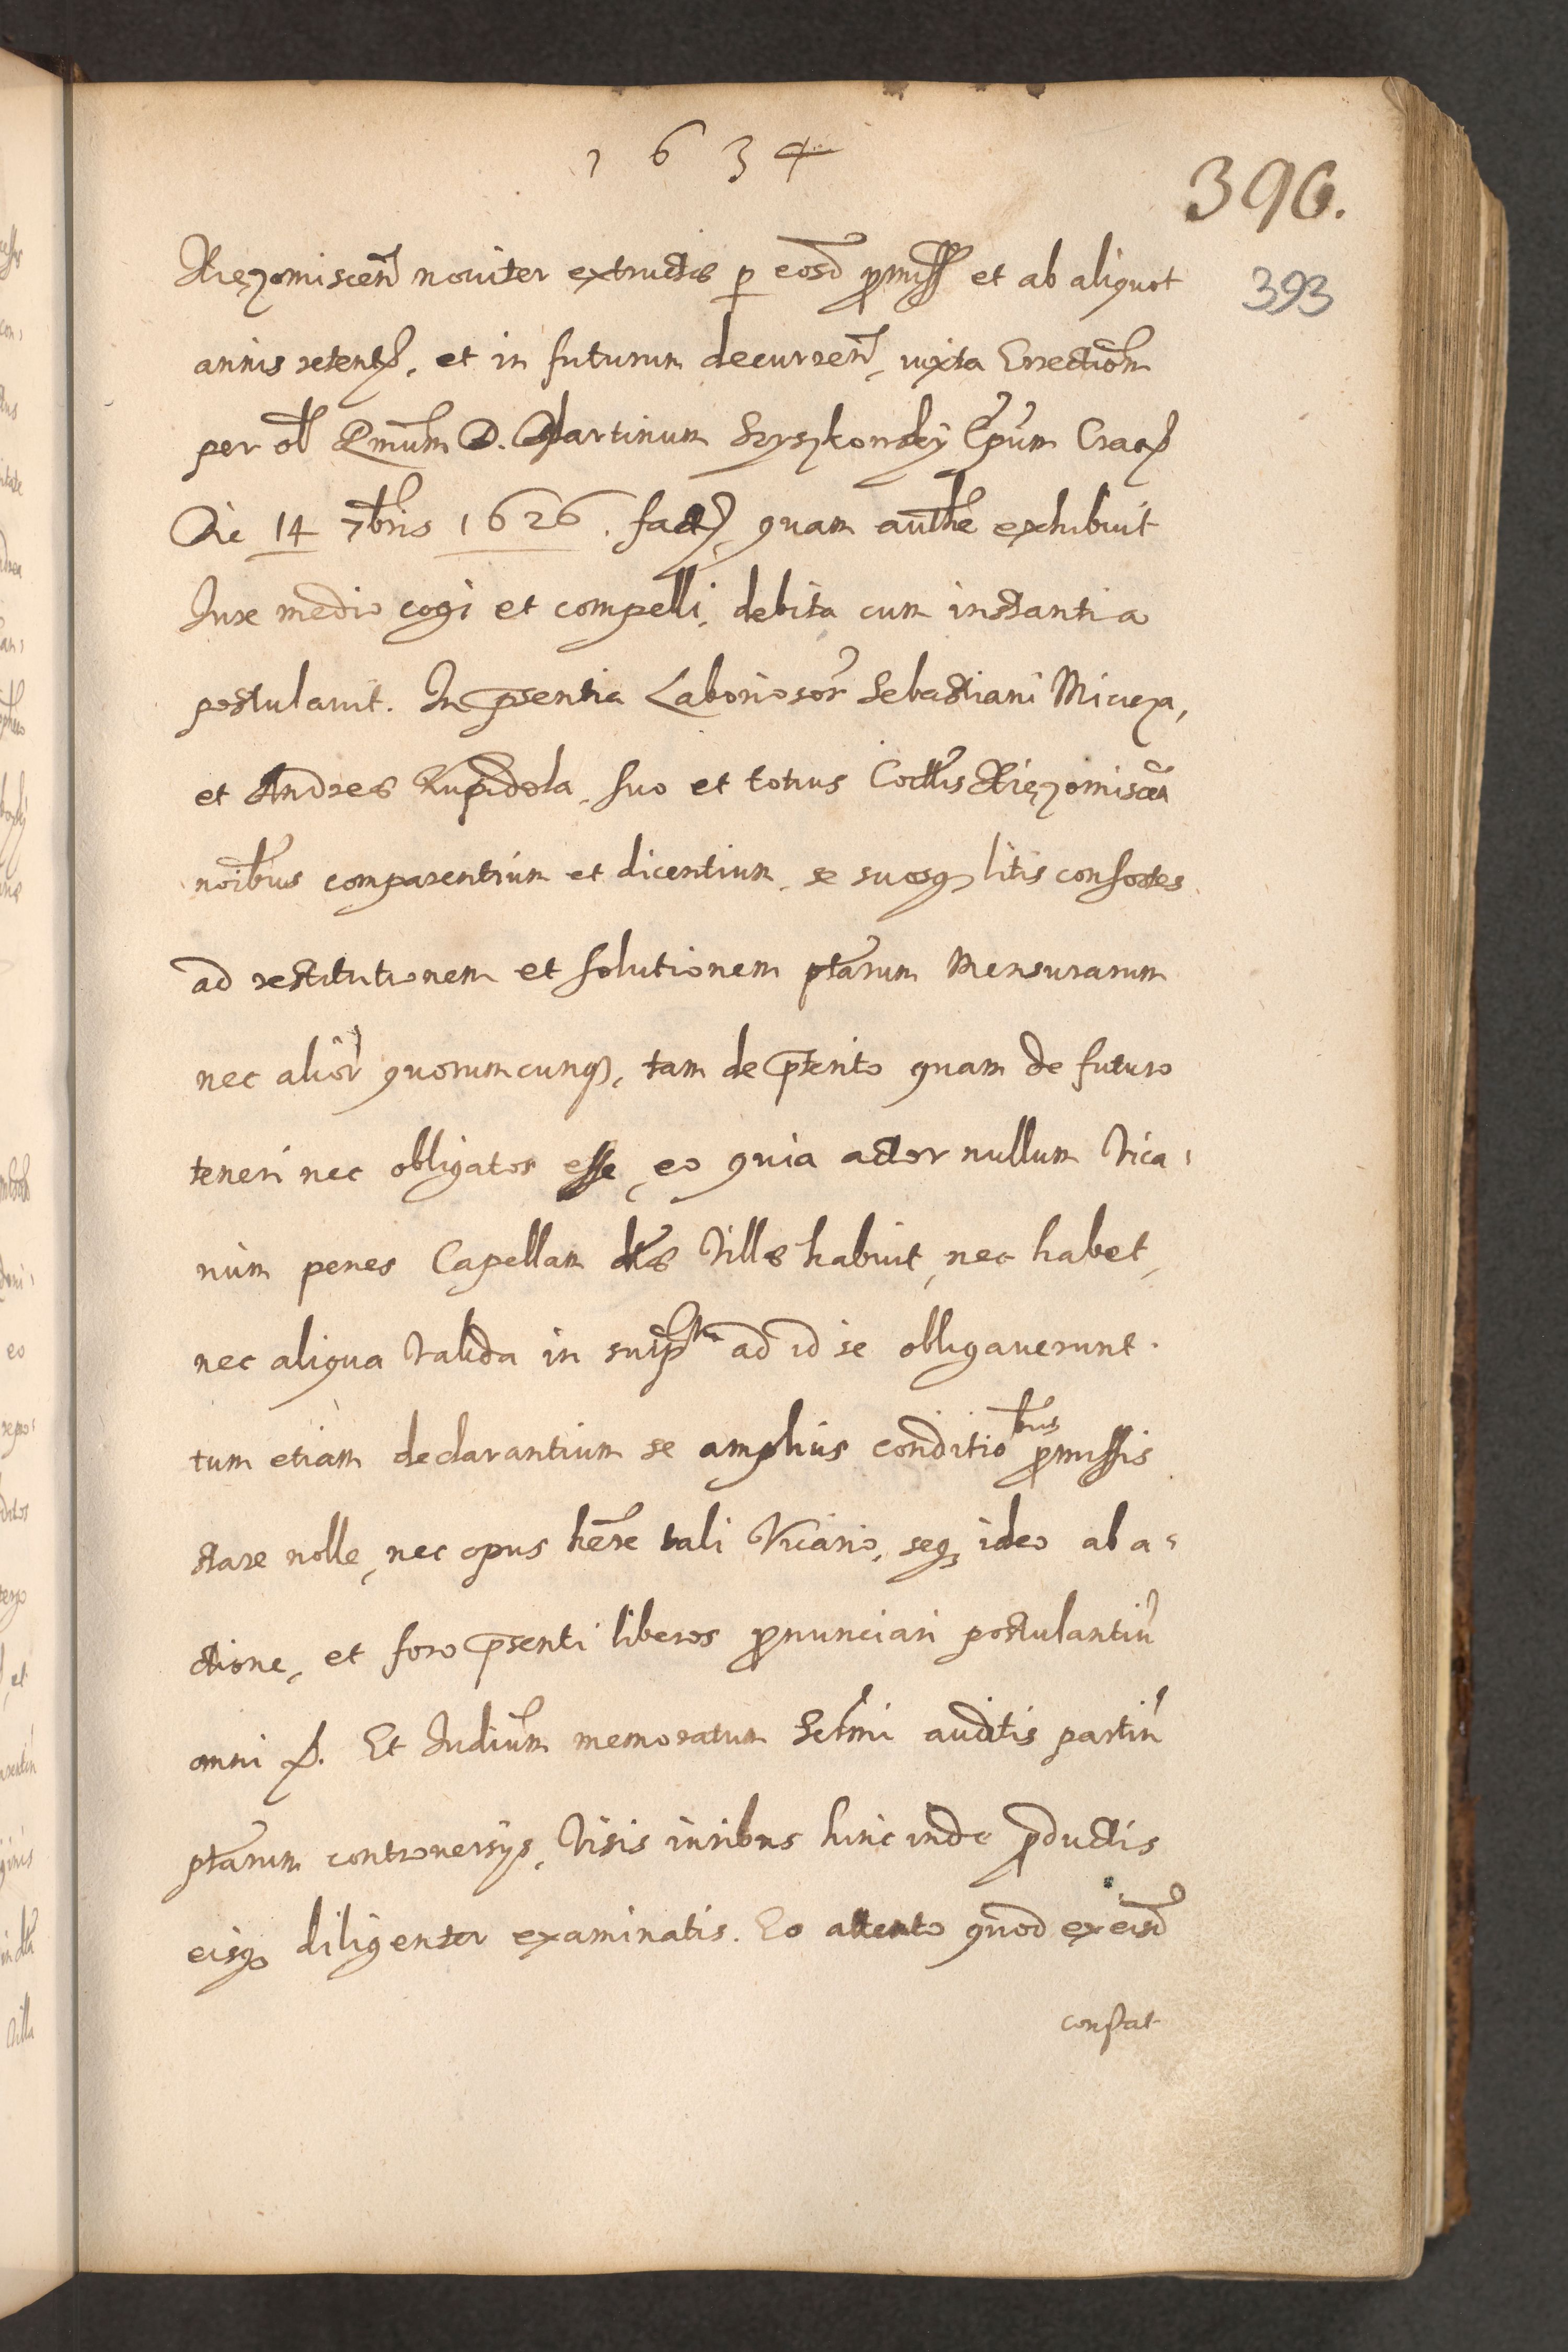 1634
396.
393
Xięzomiscen̄ noviter extructæ p eosd̄ p̄miss et ab aliquot
annis retent, et in futurum decurren̄, iuxta Erection̄m
per ol̄ Rm̄um D. Martinum Szyszkowsky Ep̄um Crac
Die 14 7bris 1626. fact, quam auth̄e exhibuit
Jure medio cogi et compelli, debita cum instantia
postulavit. In p̄sentia Laboriosor̄ Sebastiani
et Andreæ Kupidola, suo et totius Co͞ittis Xięzomiscen̄
no͞ibus comparentium et dicentium, se suosq litis consortes
ad restitutionem et solutionem p͞tarum Mensurarum
nec alior̄ quorumcunq, tam de p̄terito quam de futuro
teneri nec obligatos esse, eo quia actor nullum Vica,
rium penes Capellam d͞tæ Villæ habuit, nec habet,
nec aliqua valida in ad id se obligaverunt.
tum etiam declarantium se amplius conditiobus p̄missis
stare nolle, nec opus he͞re tali Vicario, seq ideo ab a,
ctione, et foro p̄senti liberos p̄nunciari postulantiū
omni . Et Judi͞um memoratum Sel͞mi auditis partiū
p͞tarum controversijs, Visis iuribus hinc inde p̄ductis
eisq diligenter examinatis. Eo attento quod ex eisd̄
constat